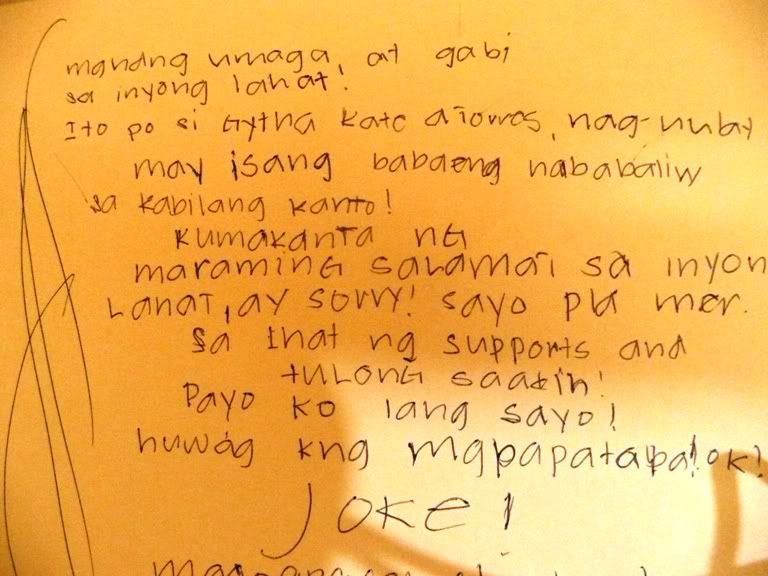 mgndng umaga, at gabi
sa inyong lahat!
Ito po si Gytha Kate dTowes, nag-nubat
may isang babaeng nababaliw
sa kabilang kanto!
KUMAKANTA NG
maraming salamaT sa inyon
LahaT, ay sorry! sayo pla mer.
sa lhat ng supports and
tULONG saatin!
Payo ko lang sayo!
huwag kng mgpapatabpa! ok?
JOKE!